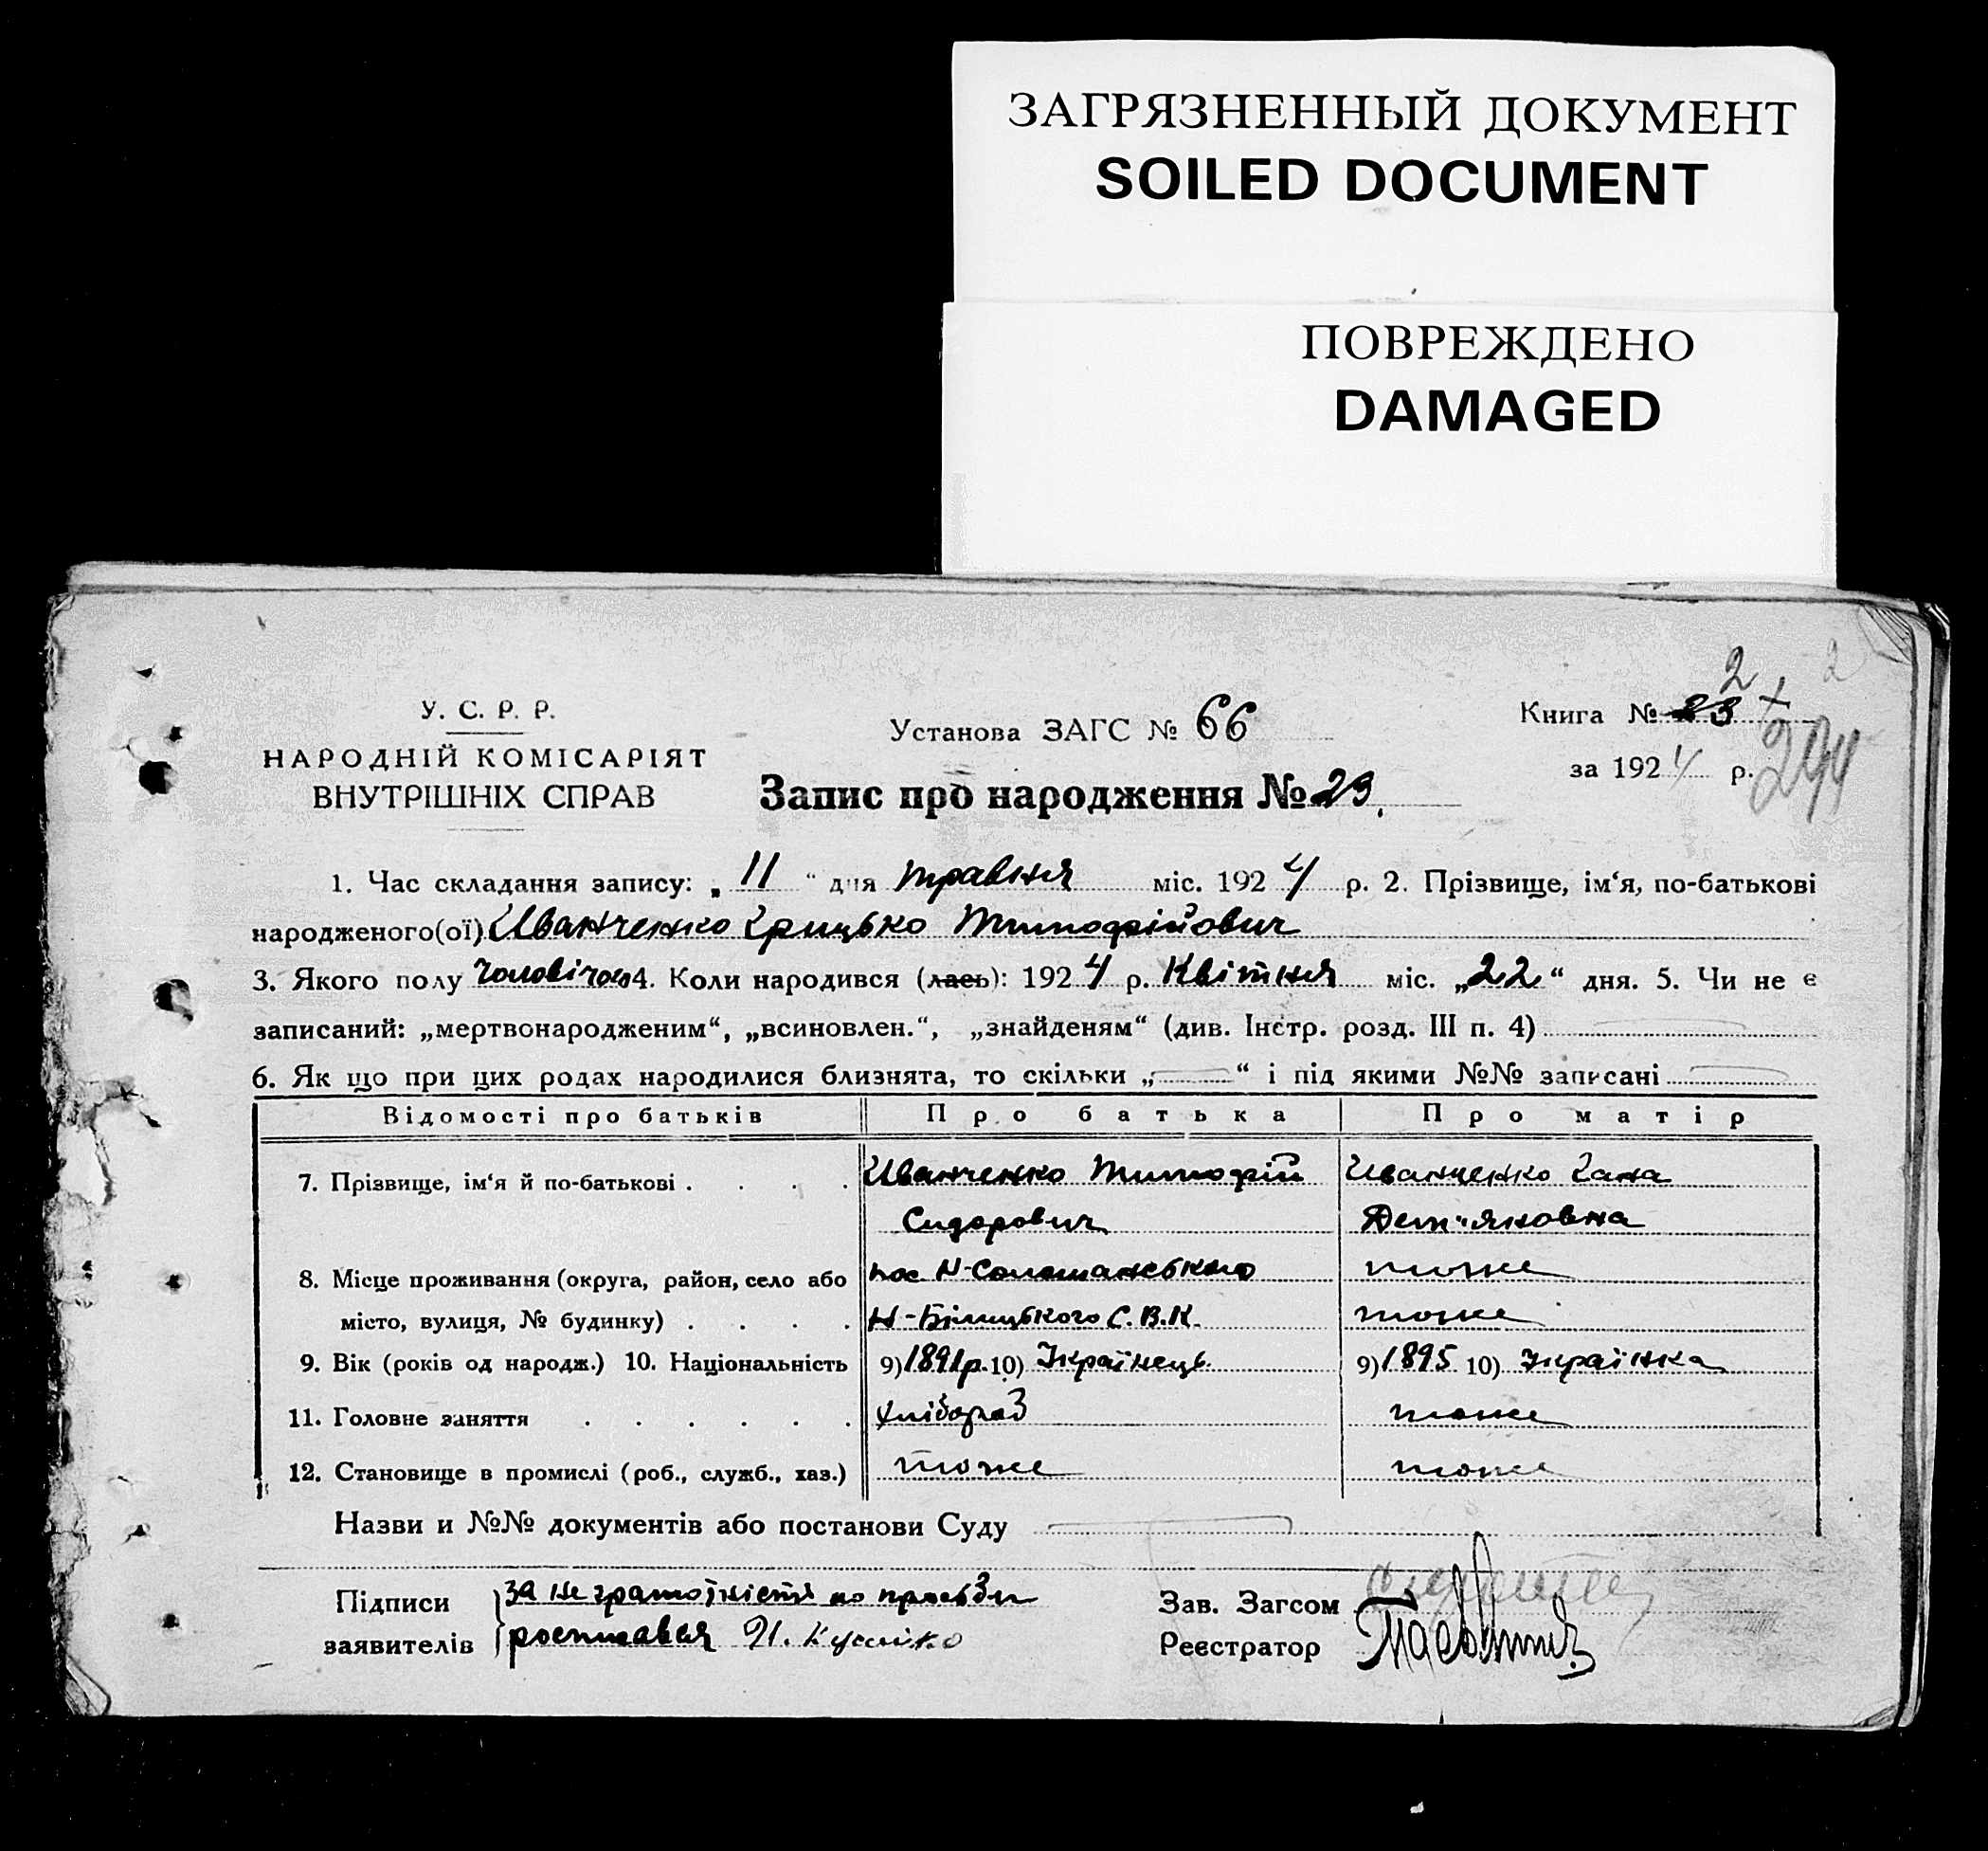 ЗАГРЯЗНЕННЫЙ ДОКУМЕНТ
SOILED DOCUMENT
ПОВРЕЖДЕНО
DAMAGED
2
2
У. С. Р. Р.
НАРОДНІЙ КОМІСАРІЯТ
ВНУТРІШНІХ СПРАВ
Установа ЗАГС № 66
Запис про народження № 23.
Книга № 23
за 1924 р.
294
1. Час складання запису: „11“ дня травня міс. 1924 р. 2. Прізвище, ім‘я, по-батькові
народженого(ої) Иванченко Грицько Тимофійович
3. Якого полу чоловічого 4. Коли народився (лась): 1924 р. Квітня міс. „22“ дня. 5. Чи не є
записаний: „мертвонародженим“, „всиновлен.“, „знайденям“ (див. Інстр. розд. III п. 4)
6. Як що при цих родах народилися близнята, то скільки „ “ і під якими №№ записані
Відомості про батьків Про батька Про матір
7. Прізвище, ім‘я й по-батькові . . . . Иванченко Тимофій Иванченко Гана
Сидорович Дем'яновна
8. Місце проживання (округа, район, село або пос Н-Соломанського тоже
місто, вулиця, № будинку) . . . . Н-Білицького С.В.К. тоже
9. Вік (років од народж.) 10. Національність 9) 1891р. 10) Українець 9) 1895 10) Українка
11. Головне заняття . . . . . . Хлібороб тоже
12. Становище в промислі (роб., служб., хаз.) тоже тоже
Назви и №№ документів або постанови Суду
Підписи за не грамотністя по прозьби Зав. Загсом
заявителів росписався Реєстратор